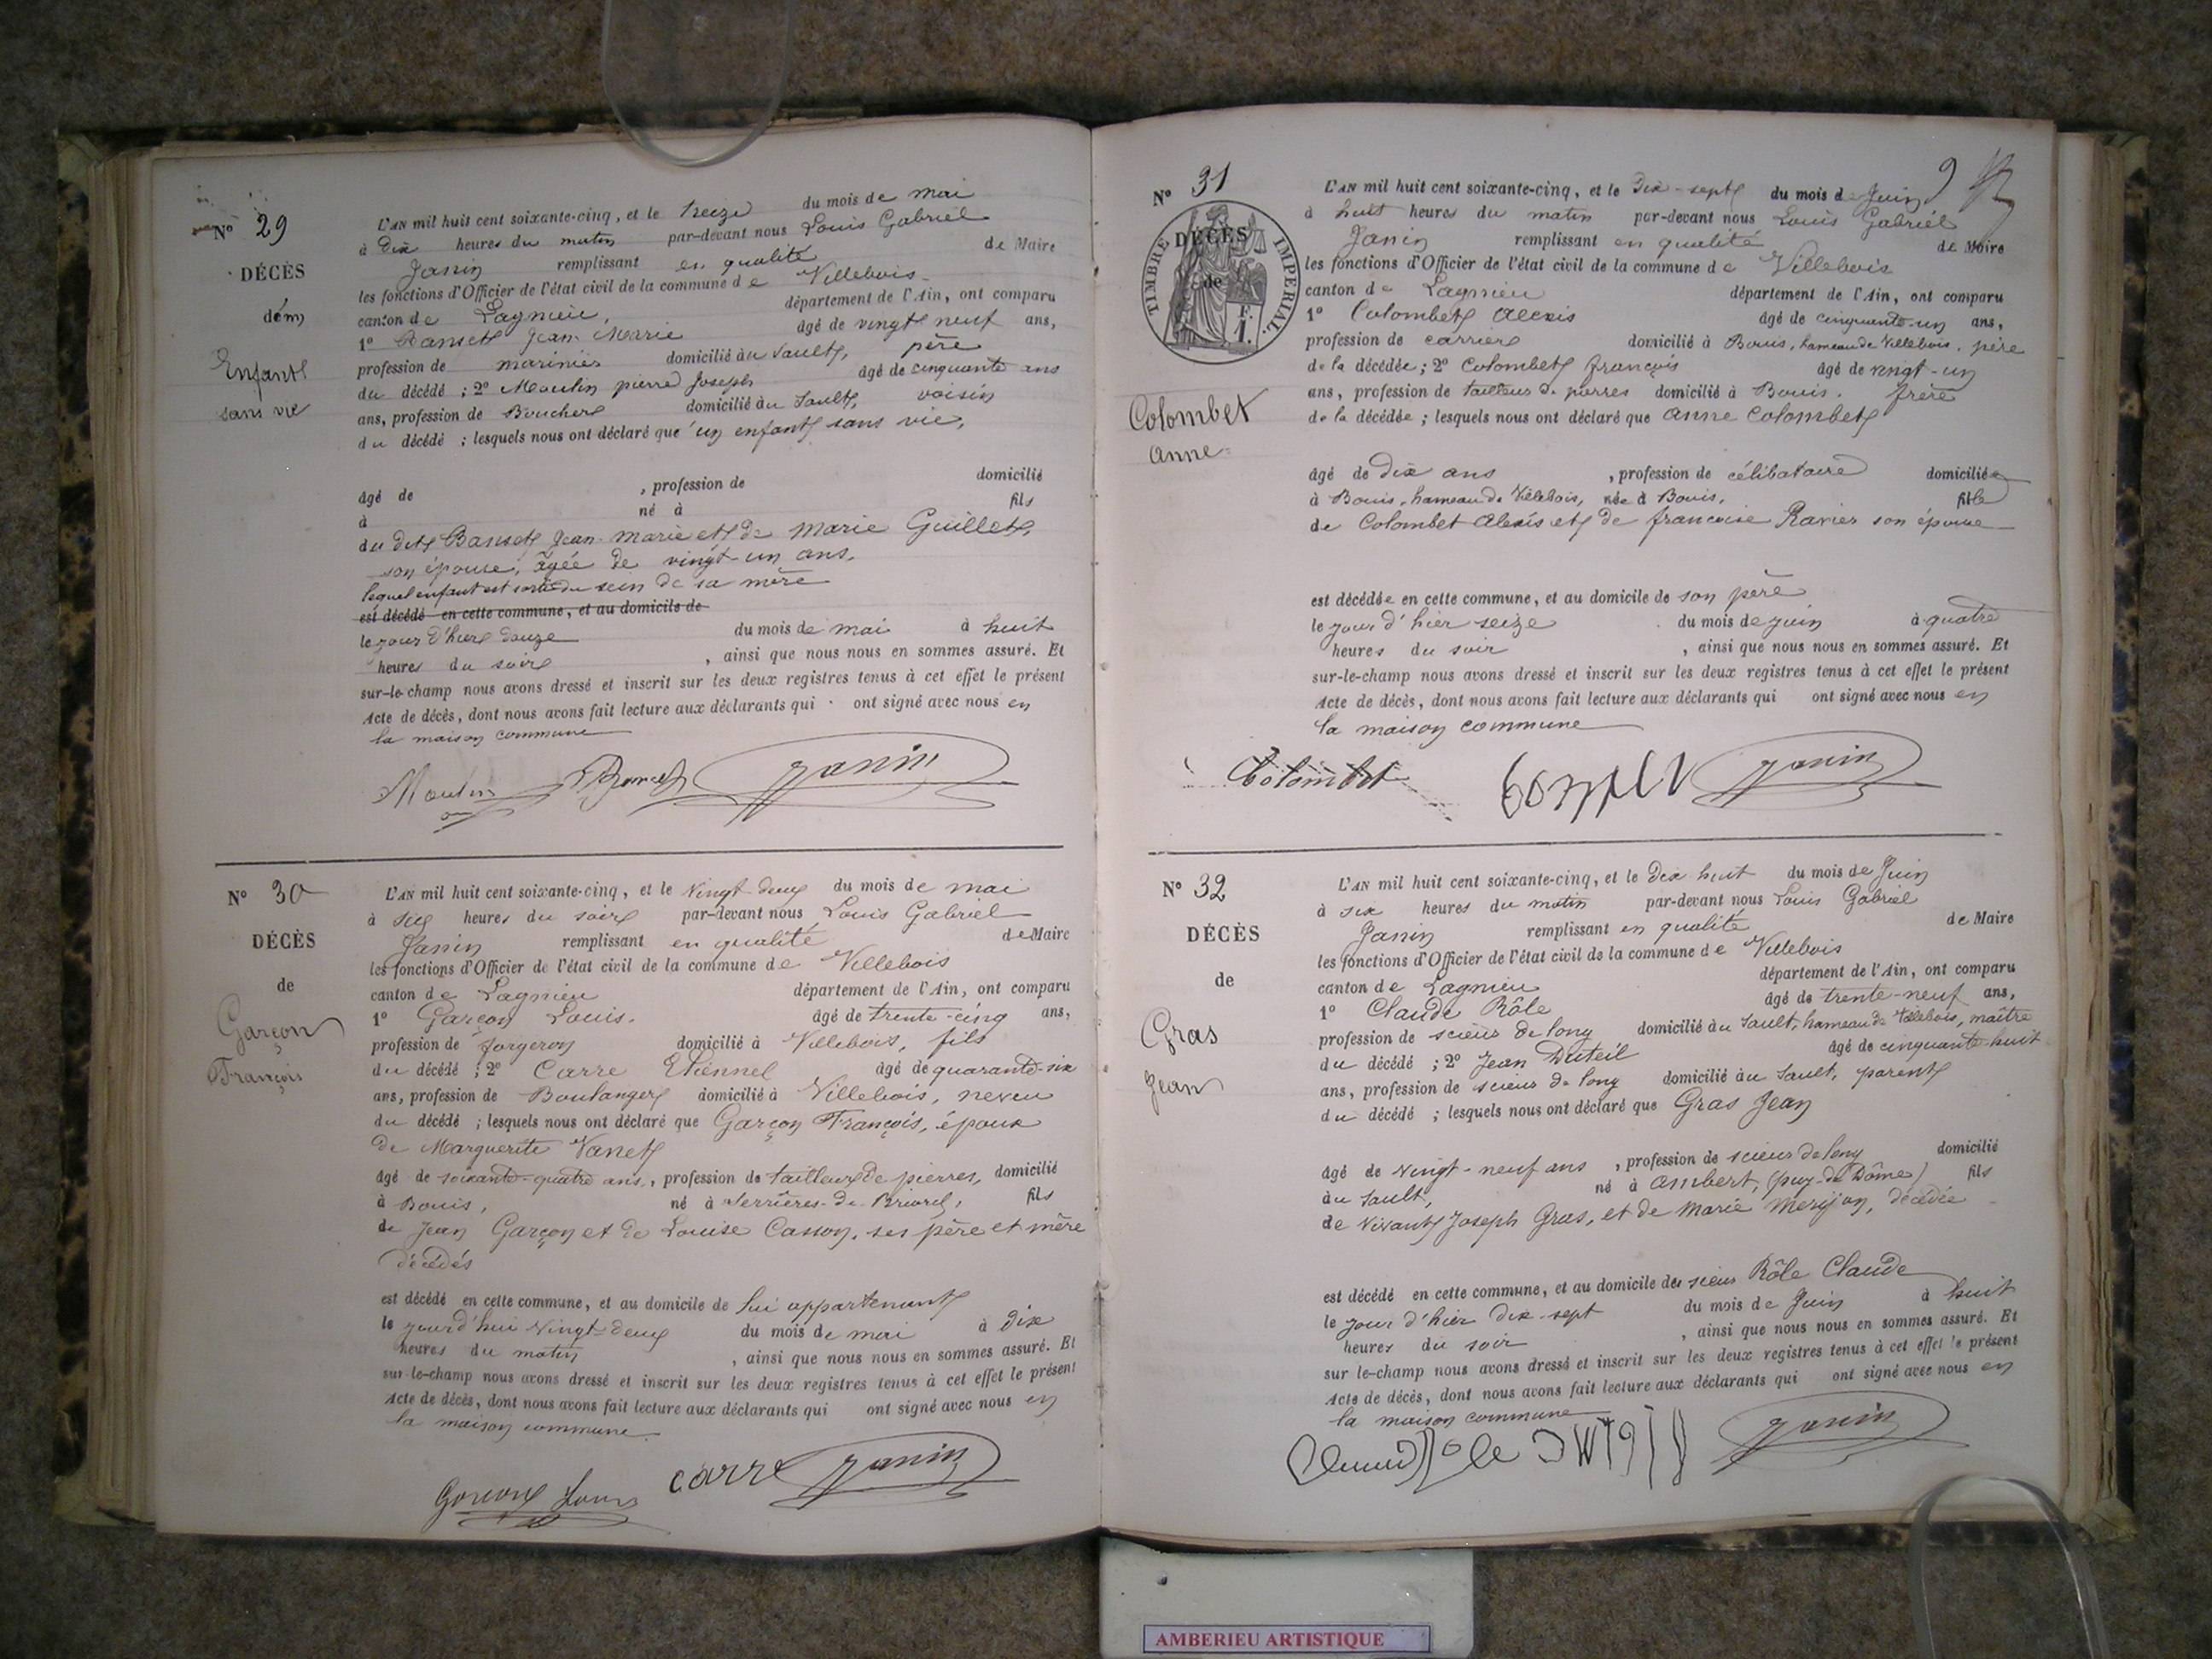 N° 29
DÉCÈS
Enfant
sans vie
L'AN mil huit cent soixante-cinq, et le treize du mois de mai
à dix heures du matin par-devant nous Louis Gabriel
Janin remplissant en qualité de Maire
les fonctions d'Officier de l'état civil de la commune de Villebois
canton de Lagnieu, département de l'Ain, ont comparu
1° Banset Jean Marie âgé de vingt neuf ans,
profession de marinier domicilié au Sault, père
du décédé ; 2° Moulin pierre Joseph âgé de cinquante ans
ans, profession de Boucher domicilié au Sault, voisin
du décédé ; lesquels nous ont déclaré que un enfant sans vie,
âgé de , profession de domicilié
à né à fils
du dit Banset Jean marie et de Marie Guillet,
son épouse, âgée de vingt-un ans,
lequel enfant est sorti du sein de sa mère
est décédé en cette commune, et au domicile de
le jour d'hier douze du mois de mai à huit
heures du soir , ainsi que nous nous en sommes assuré. Et
sur-le-champ nous avons dressé et inscrit sur les deux registres tenus à cet effet le présent
Acte de décès, dont nous avons fait lecture aux déclarants qui ont signé avec nous en
la maison commune
Moulin Janin
N° 30
DÉCÈS
de
Garçon
François
L'AN mil huit cent soixante-cinq, et le Vingt-deux du mois de mai
à six heures du soir par-devant nous Louis Gabriel
Janin remplissant en qualité de Maire
les fonctions d'Officier de l'état civil de la commune de Villebois
canton de Lagnieu département de l'Ain, ont comparu
1° Garçon Louis. âgé de trente-cinq ans,
profession de forgeron domicilié à Villebois, fils
du décédé ; 2° Carre Etiennel âgé de quarante-six
ans, profession de Boulanger domicilié à Villebois, neveu
du décédé ; lesquels nous ont déclaré que Garçon François, époux
de Marguerite Vanet
âgé de soixante-quatre ans, profession de tailleur de pierres, domicilié
à Bouis, né à Serrières-de-Briord, fils
de Jean Garçon et de Louise Casson, ses père et mère
décédés
est décédé en cette commune, et au domicile de lui appartenant
le jourd'hui Vingt-deux du mois de mai à dix
heures du matin , ainsi que nous nous en sommes assuré. Et
sur-le-champ nous avons dressé et inscrit sur les deux registres tenus à cet effet le présent
Acte de décès, dont nous avons fait lecture aux déclarants qui ont signé avec nous en
la maison commune.
Garçon Louis carre Janin
N° 31
TIMBRE IMPÉRIAL.
DÉCÈS
de
Colombet
Anne
L'AN mil huit cent soixante-cinq, et le Dix-sept du mois de Juin
à huit heures du matin par-devant nous Louis Gabriel
Janin remplissant en qualité de Maire
les fonctions d'Officier de l'état civil de la commune de Villebois
canton de Lagnieu département de l'Ain, ont comparu
1° Colombet Alexis âgé de cinquante-un ans,
profession de carrier domicilié à Bouis, hameau de Villebois, père
de la décédée ; 2° Colombet françois âgé de vingt-un
ans, profession de tailleur de pierres domicilié à Bouis. frère
de la décédée ; lesquels nous ont déclaré que Anne Colombet
âgé de dix ans , profession de célibataire domiciliée
à Bouis, hameau de Villebois, née à Bouis, fille
de Colombet Alexis et de francoise Ravier son épouse
est décédée en cette commune, et au domicile de son père
le jour d'hier seize du mois de juin à quatre
heures du soir , ainsi que nous nous en sommes assuré. Et
sur-le-champ nous avons dressé et inscrit sur les deux registres tenus à cet effet le présent
Acte de décès, dont nous avons fait lecture aux déclarants qui ont signé avec nous en
la maison commune
Colombet Janin
N° 32
DÉCÈS
de
Gras
Jean
L'AN mil huit cent soixante-cinq, et le Dix huit du mois de Juin
à six heures du matin par-devant nous Louis Gabriel
Janin remplissant en qualité de Maire
les fonctions d'Officier de l'état civil de la commune de Villebois
canton de Lagnieu département de l'Ain, ont comparu
1° Claude Rôle âgé de trente-neuf ans,
profession de scieur de long domicilié au Sault, hameau de Villebois, maître
du décédé ; 2° Jean Duteil âgé de cinquante-huit
ans, profession de scieur de long domicilié au Sault, parent
du décédé ; lesquels nous ont déclaré que Gras Jean
âgé de Vingt-neuf ans , profession de scieur de long domicilié
au Sault, né à Ambert, (puy-de Dôme) fils
de Vivant Joseph Gras, et de Marie Merijon, décédée
est décédé en cette commune, et au domicile du sieur Rôle Claude
le jour d'hier Dix-sept du mois de Juin à huit
heures du soir , ainsi que nous nous en sommes assuré. Et
sur le-champ nous avons dressé et inscrit sur les deux registres tenus à cet effet le présent
Acte de décès, dont nous avons fait lecture aux déclarants qui ont signé avec nous en
la maison commune
Janin
AMBERIEU ARTISTIQUE